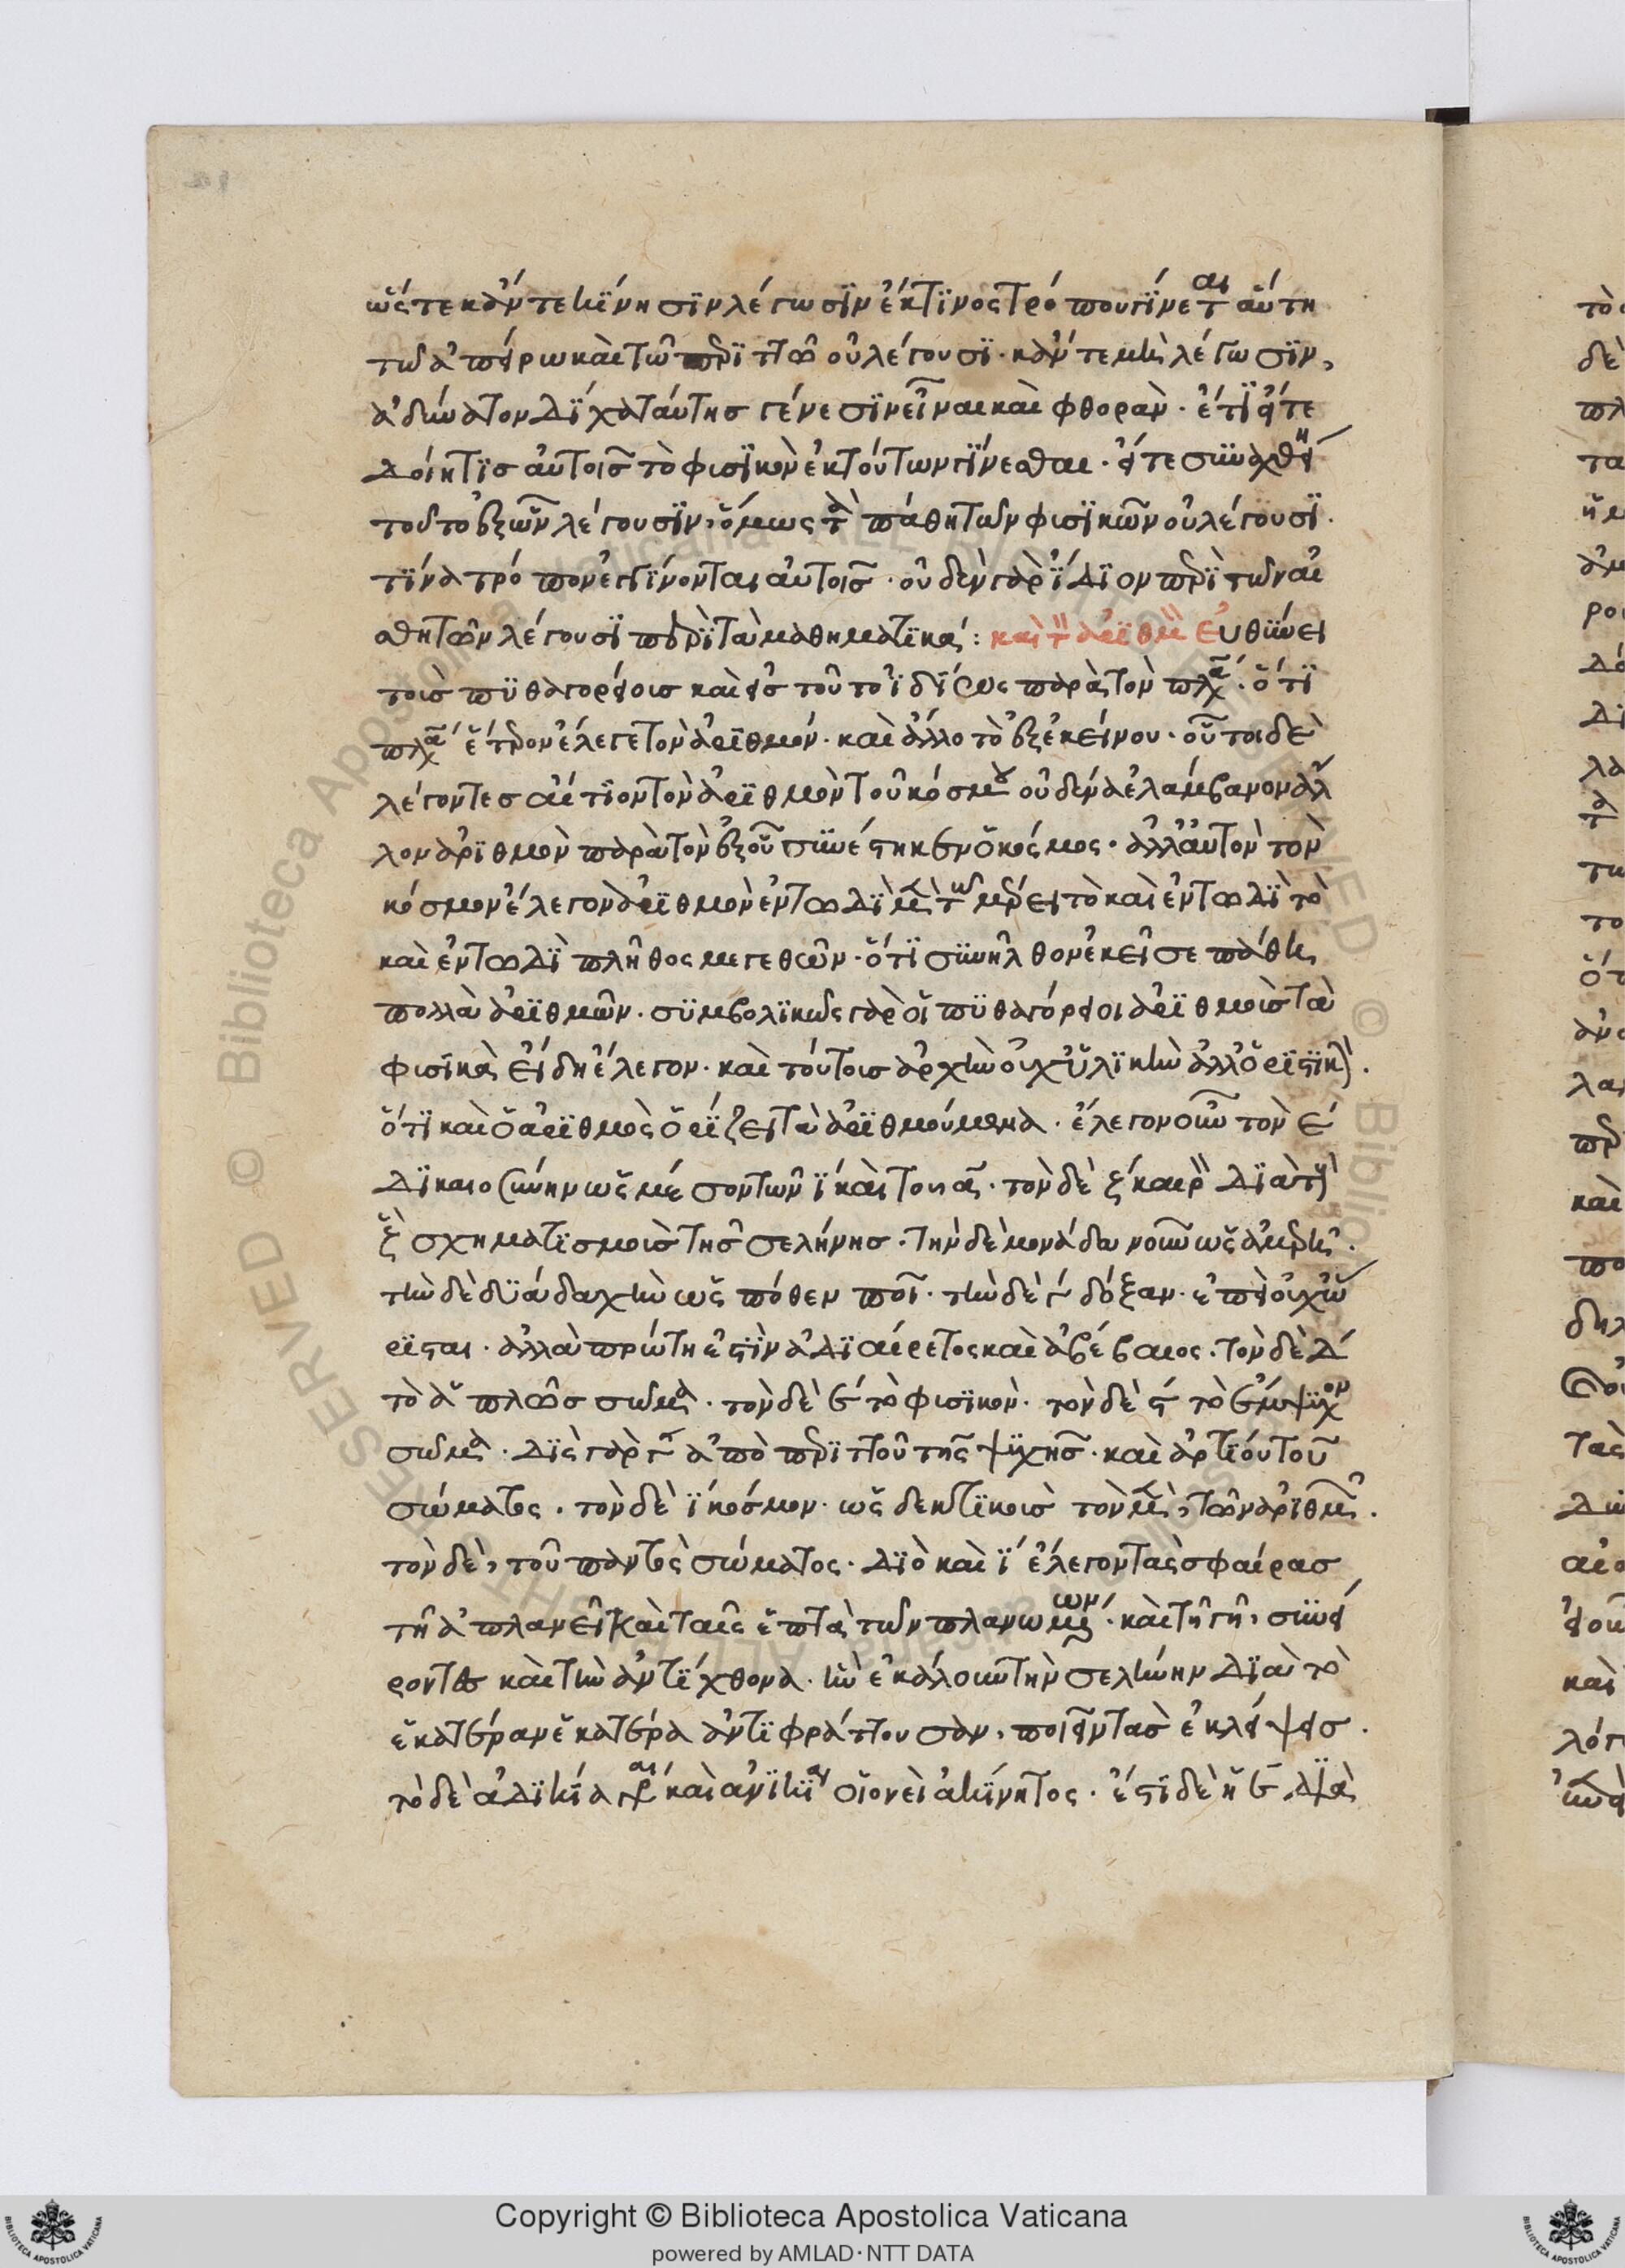 ὥστε κἄν τε κίνησιν λέγωσιν ἐκ τίνος τρόπου γίνεται αὕτη
τῶ ἀπείρω καὶ τῶ περιττῶ οὐ λέγουσι · κἄν τε μὴ λέγωσιν,
ἀδύνατον δίχα ταύτης γένεσιν εἶναι καὶ φθοράν · ἔτι εἴτε
δοίη τις αὐτοῖς τὸ φισικὸν ἐκ τούτων γίνεσθαι · εἴτε συναχθείη
τοῦτο ἐξ ὧν λέγουσιν, ὅμως τὰ πάθη τῶν φισικῶν οὐ λέγουσι ·
τίνα τρόπον ἐγγίνονται αὐτοῖς · οὐδὲν γὰρ ἴδιον περὶ τῶν αἰ
σθητῶν λέγουσι περὶ τὰ μαθηματικά : καὶ τ ἀριθμ εὐθύνει
τοὺς πυθαγορείοις καὶ εἰς τοῦτο ἰδίως παρὰ τὸν πλ · ὅτι
πλ ἕτερον ἔλεγε τὸν ἀριθμόν · καὶ ἄλλο τὸ ἐξ ἐκείνου · οὗτοι δὲ
λέγοντες αἴτιον τὸν ἀριθμὸν τοῦ κόσμου οὐδένα ἐλάμβανον ἄλ
λον ἀριθμὸν παρὰ τὸν ἐξ οὗ συνέστηκεν ὁ κόσμος · ἀλλ' αὐτὸν τὸν
κόσμον ἔλεγον ἀριθμὸν ἐν τῶ δὶ μὲν τῶ μέρει τὸ καὶ ἐν τῶ δὶ τὸ
καὶ ἐν τῶ δὶ πλῆθος μεγεθῶν · ὅτι συνῆλθον ἐκεῖσε πάθη
πολλὰ ἀριθμῶν · συμβολικῶς γὰρ οἱ πυθαγόρειοι ἀριθμοῖς τὰ
φισικὰ εἴδη ἔλεγον · καὶ τούτοις ἀρχὴν οὐχ ὑλικὴν ἀλλ' ὁριστικήν ·
ὅτι καὶ ὁ ἀριθμὸς ὁρίζει τὰ ἀριθμούμενα · ἔλεγον οὖν τὸν ε
δικαιοσύνην ὡς μέσον τῶν ι καὶ τοῦ α · τὸν δὲ ξ καιρὸν διὰ τοὺς
ξ σχηματισμοὺς τῆς σελήνης · τὴν δὲ μονάδα νοῦν ὡς ἀμερῆ ·
τὴν δὲ δυάδα χὴν ὡς πόθεν ποῖ · τὴν δὲ γ δόξαν · ἐπεὶ οὐχ ὥ
ρισται · ἀλλὰ πρώτη ἐστὶν ἀδιαίρετος καὶ ἀβέβαιος · τὸν δὲ δ
τὸ ἁπλῶς σῶμα · τὸν δὲ ε τὸ φισικόν · τὸν δὲ ϛ τὸ ἔμψυχον
σῶμα · δὶς γὰρ γ ἀπὸ περιττοῦ τῆς ψυχῆς · καὶ ἀρτίου τοῦ
σώματος · τὸν δὲ ι κόσμον · ὡς δεκτικοὺς τὸν μὲν, τῶν ἀριθμῶν ·
τὸν δὲ, τοῦ παντὸς σώματος · διὸ καὶ ι ἔλεγον τὰς σφαίρας
τῆ ἀπλανεῖ καὶ ταῖς ἑπτὰ τῶν πλανωμένων · καὶ τῆ γῆ, συνεί
ροντες καὶ τὴν ἀντίχθονα · ἣν ἐκάλουν τὴν σελήνην διὰ τὸ
ἑκατέραν ἑκατέρα ἀντιφράττουσαν, ποιεῖν τὰς ἐκλείψεις ·
τὸ δὲ ἀδικία καὶ ἀνικία οἱονεὶ ἀκίνητος · ἔστι δὲ ἡ ε